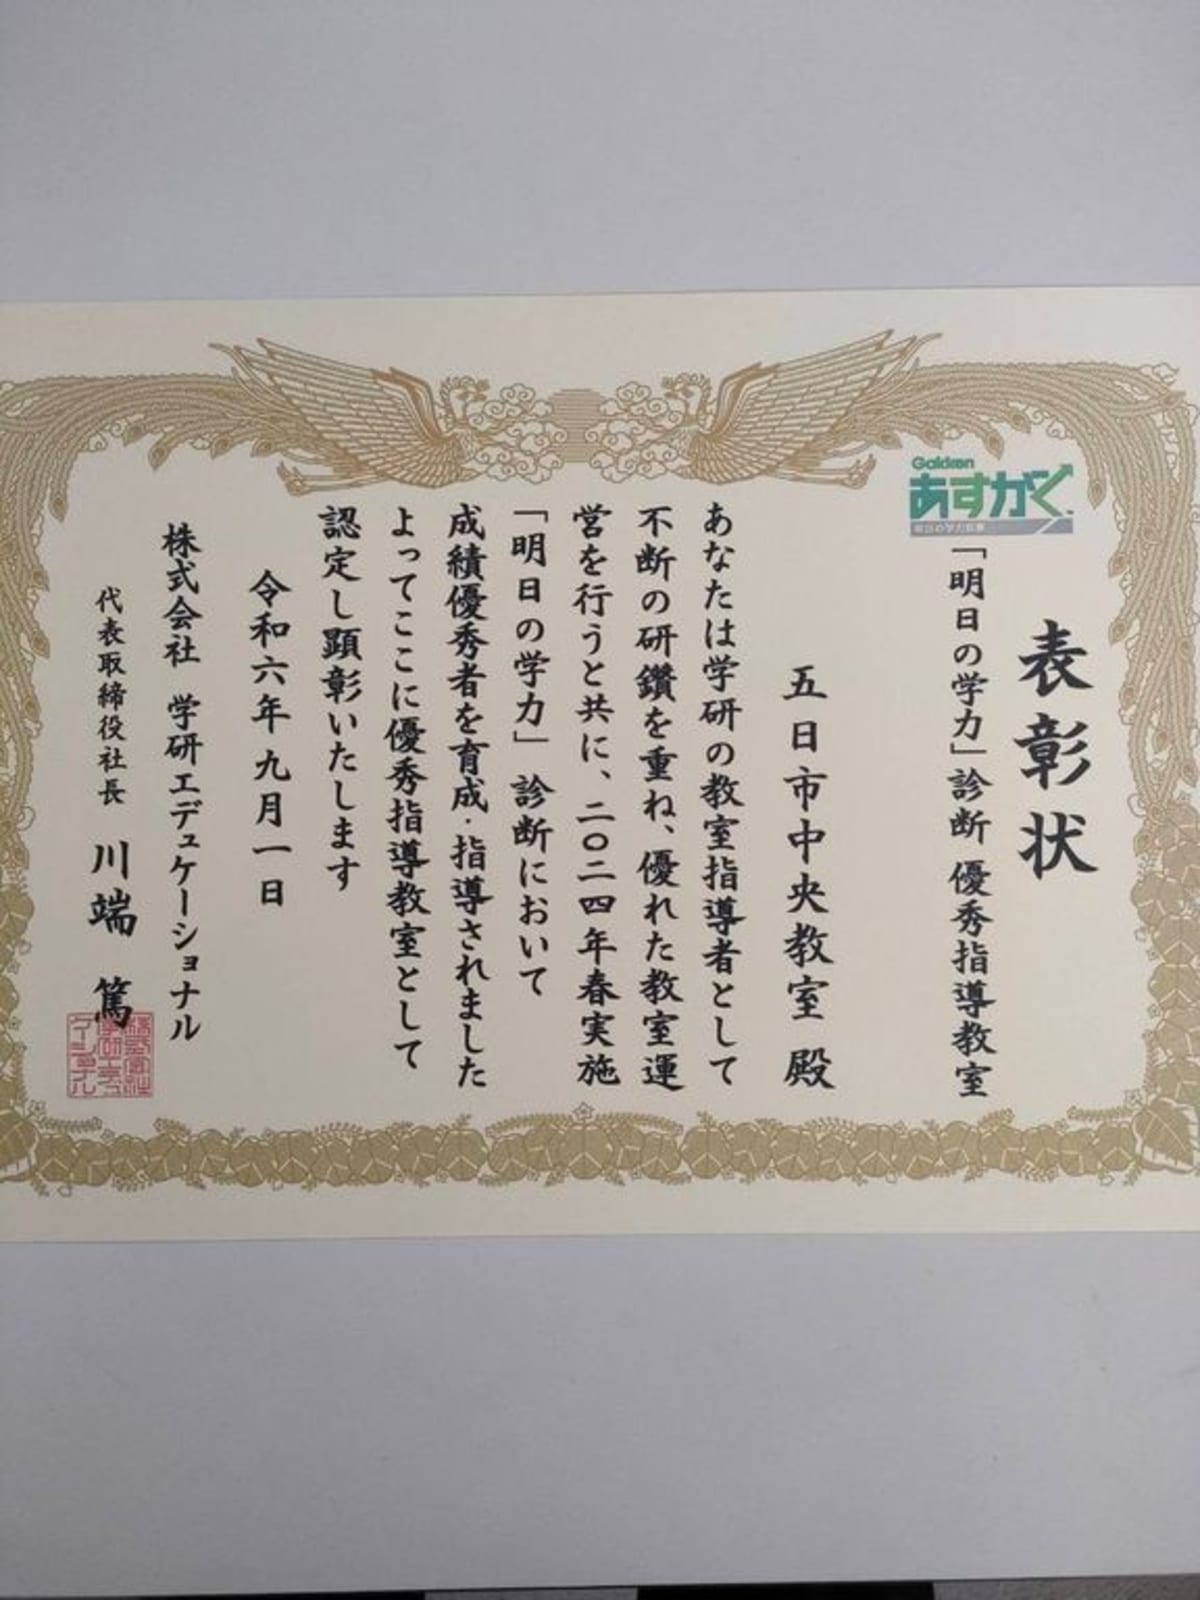 表彰状
Gakken
あすがく
明日の学力診断
「明日の学力」診断 優秀指導教室
五日市中央教室 殿
あなたは学研の教室指導者として
不断の研鑽を重ね、優れた教室運
営を行うと共に、二〇二四年春実施
「明日の学力」診断において
成績優秀者を育成・指導されました
よってここに優秀指導教室として
認定し顕彰いたします
令和六年九月一日
株式会社 学研エデュケーショナル
代表取締役社長 川端 篤
株式会社
学研エデュ
ケーショナル